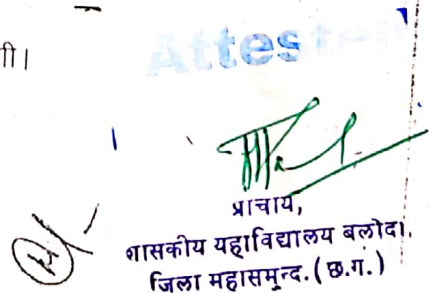 गी।
Attested
प्राचार्य,
शासकीय महाविद्यालय बलोदा,
जिला महासमुन्द.(छ.ग.)